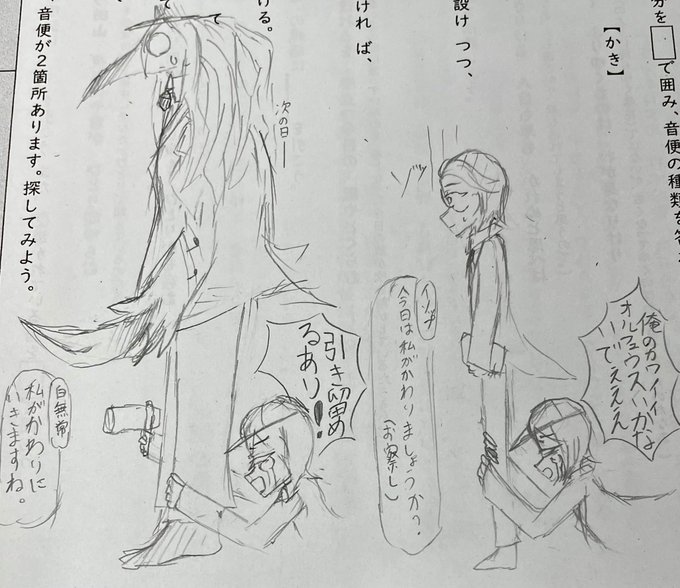 分を□で囲み、音便の種類を答
【かき】
設け つつ、
けれ ば、
ける。
て
音便が2箇所あります。探してみよう。
俺のカワイイ
オルフェウスいかな
いでぇえええ
ゾッ
イソップ
今日は私がかわりましょうか?
(お察し)
次の日―
引き留め
るあり!
白無常
私がかわりに
いきますね。